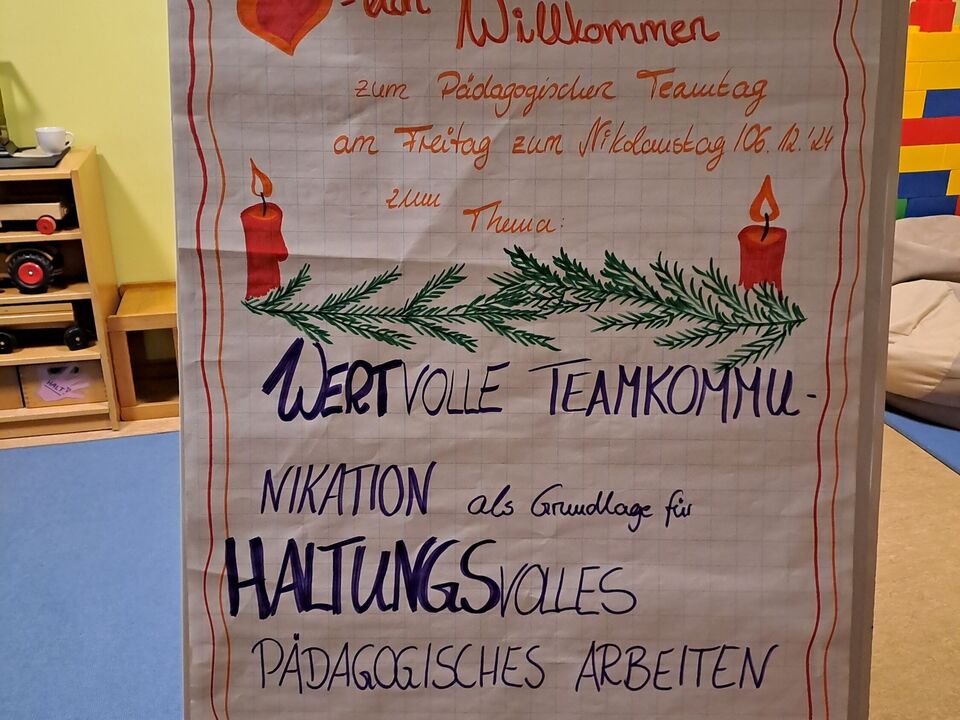 Willkommen
zum Pädagogischen Teamtag
am Freitag zum Nikolaustag /06.12.'24
zum
Thema:
WERTVOLLE TEAMKOMMU-
NIKATION als Grundlage für
HALTUNGSVOLLES
PÄDAGOGISCHES ARBEITEN
HALT!